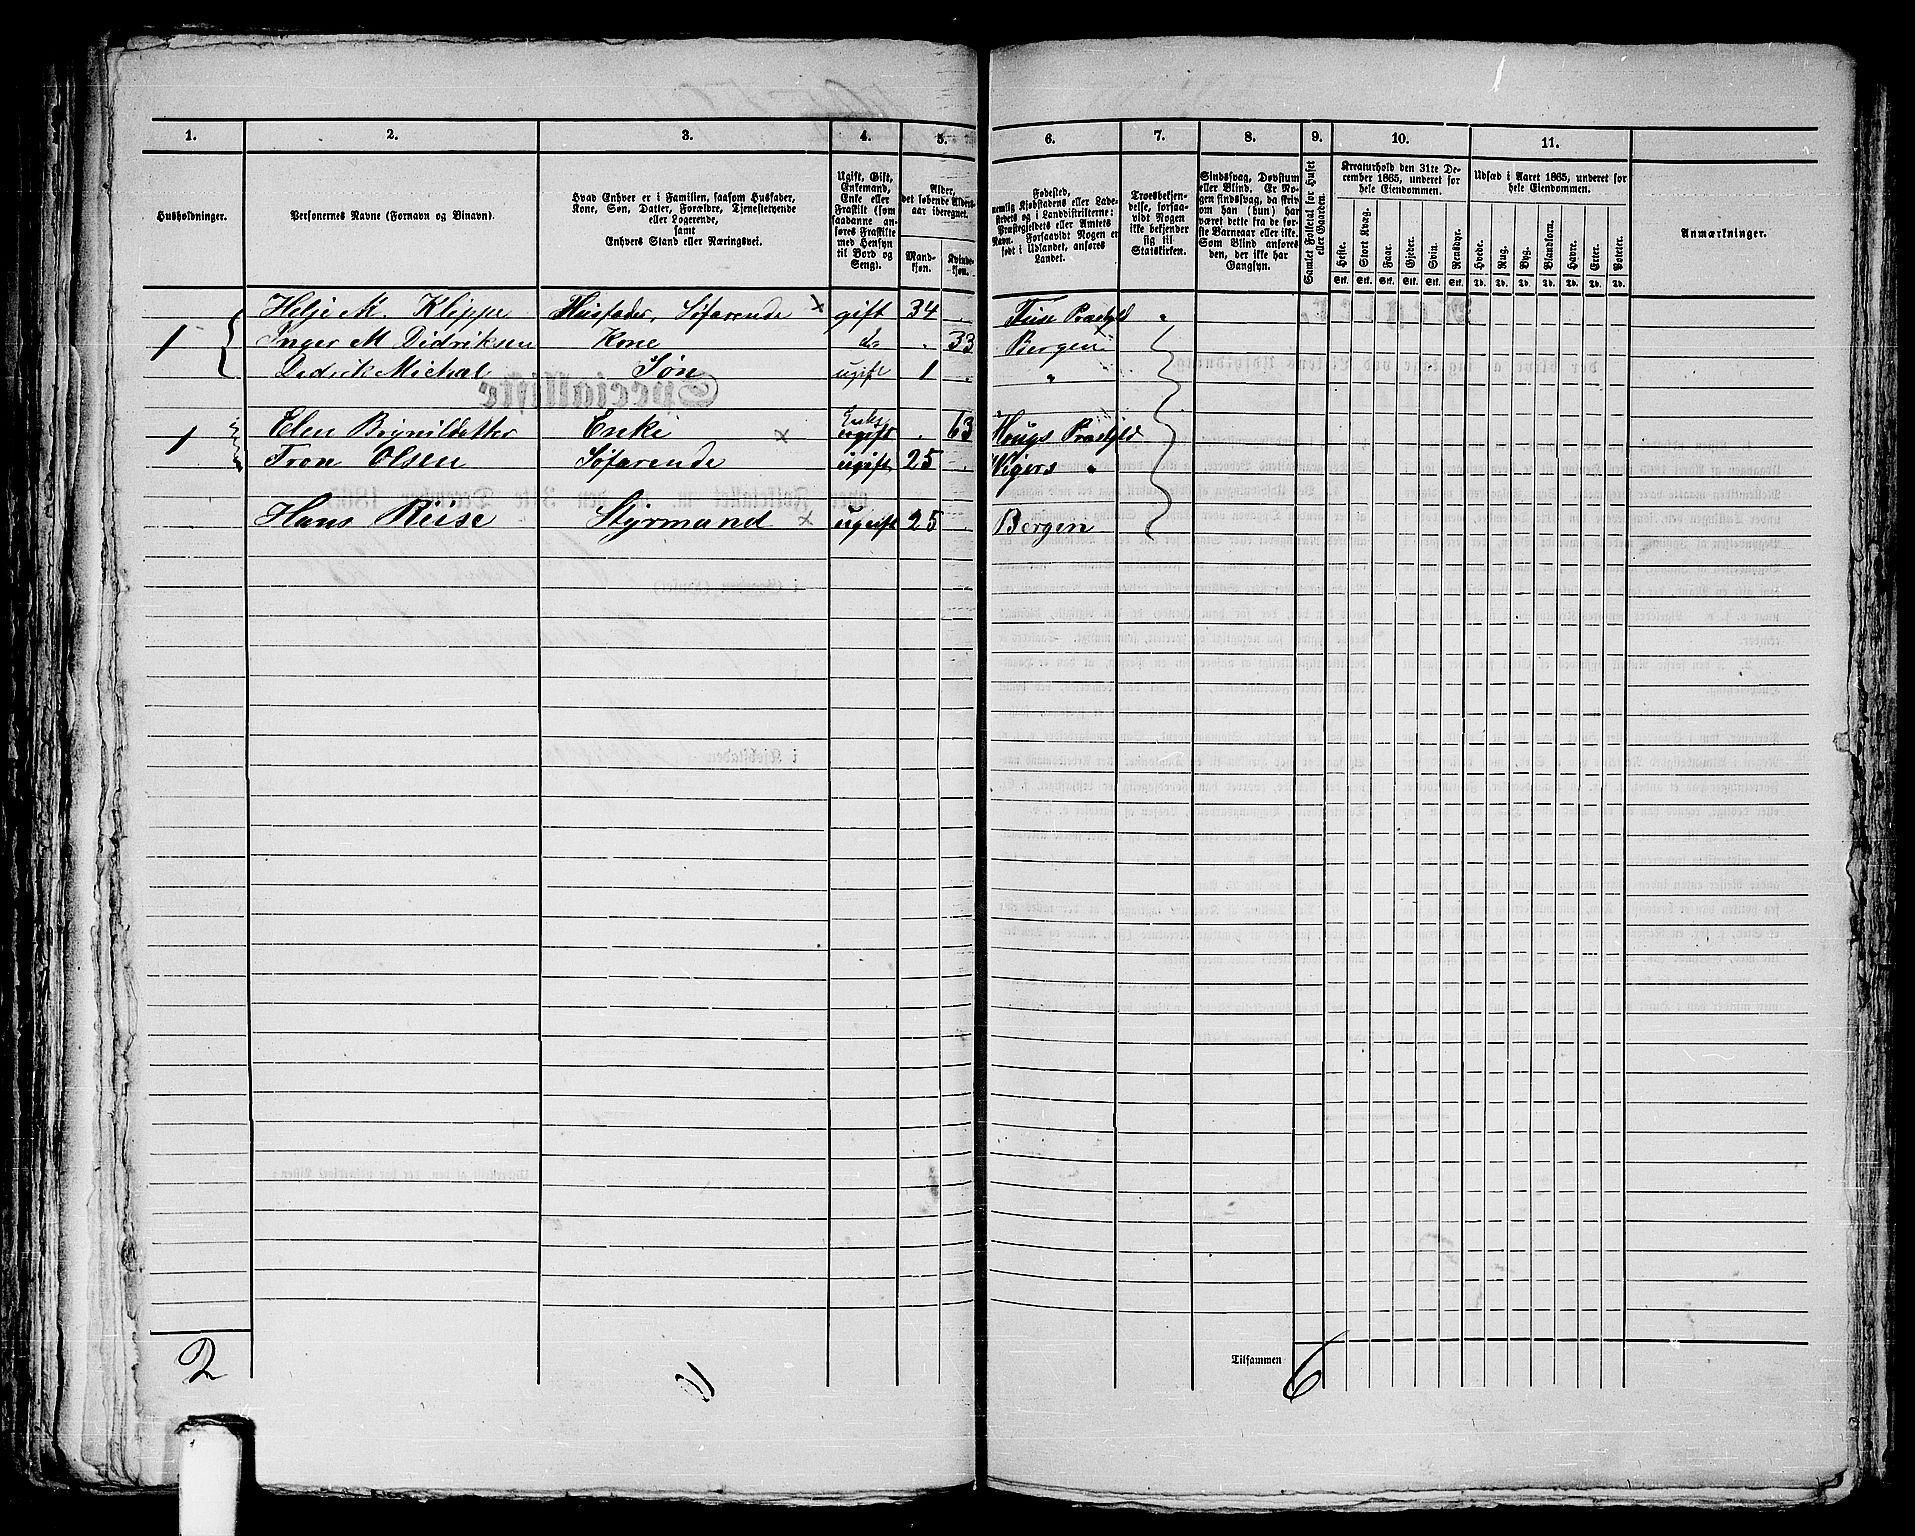 1. 2. 3. 4. 5. 6. 7. 8. 9. 10. 11.
Husholdninger.
Personernes Navne (Fornavn og Binavn).
Hvad Enhver er i Familien, saasom Husfader,
Kone, Søn, Datter, Forældre, Tjenestetyende
eller Logerende,
samt
Enhvers Stand eller Næringsvei.
Ugift, Gift,
Enkemand,
Enke eller
Fraskilt (som
saadanne an-
føres Fraskilte
med Hensyn
til Bord og
Seng).
Alder,
det løbende Alders-
aar iberegnet.
Mand-
kjøn.
Kvinde-
kjøn.
Fødested,
nemlig Kjøbstadens eller Lade-
stedets og i Landdistrikterne:
Præstegjeldets eller Amtets
Navn. Forsaavidt Nogen er
født i Udlandet, anføres
Landet.
Troesbekjen-
delse, forsaa-
vidt Nogen
ikke bekjender
sig til
Statskirken.
Sindssvag, Døvstum
eller Blind. Er No-
gen sindssvag, da skriv
om han (hun) har
været dette fra de før-
ste Barneaar eller ikke.
Som Blind anføres
den, der ikke har
Gangsyn.
Samlet Folketal for Huset
eller Gaarden.
Kreaturhold den 31te De-
cember 1865, underet for
hele Eiendommen.
Heste. Stort Kvæg. Faar. Gjeder. Svin. Rensdyr.
Stk. Stk. Stk. Stk. Stk. Stk.
Udsæd i Aaret 1865, underet for
hele Eiendommen.
Hvede. Rug. Byg. Blandkorn. Havre. Erter. Poteter.
Td. Td. Td. Td. Td. Td. Td.
Anmærkninger.
Helje M. Klippe Husfader, Søfarende × gift 34 . Præstgld "
1 Inger M Didriksen Kone do . 33 Bergen
Didrik Michal Søn ugift 1 . "
1 Elen Brynildatter Enke × Enke . 63 Hougs Præstgld
Tron Olsen Søfarende ugift 25 . "
Hans Reise Styrmand × ugift 25 . Bergen
2
Tilsammen 6